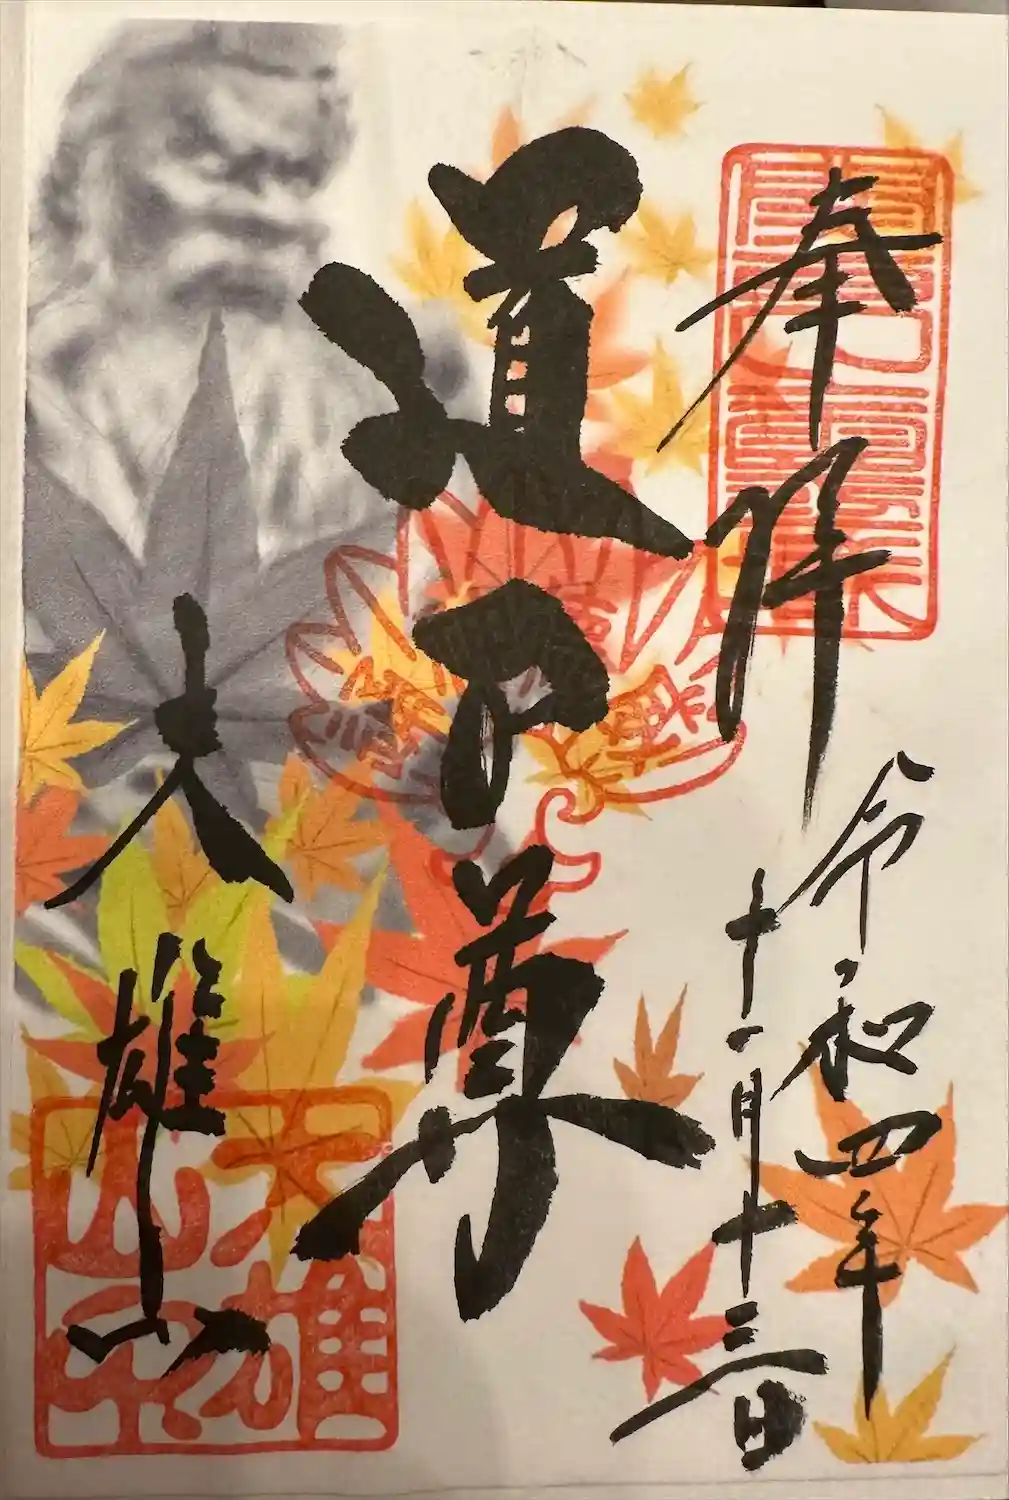 奉拝
令和四年
十一月十三日
道了尊
大雄山
大雄
山印